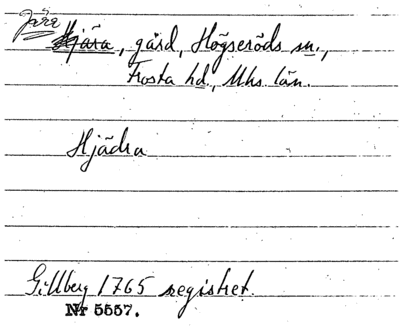 Jära
Hjära, gård, Högseröds sn.,
Frosta hd., Mhs. län.
Hjädra
Gillberg 1765 registret.
Nr 5557.